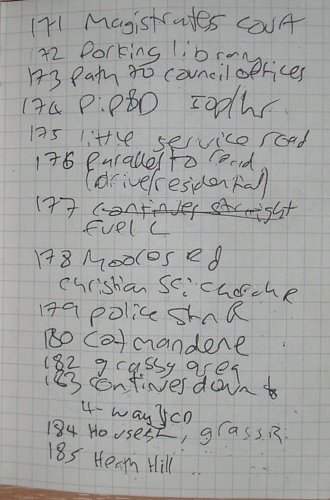 171 Magistrates court
172 Dorking library
173 Path to council offices
174 P:P&D 70p/hr
175 little service road
176 parallel to road
(drive/residential)
177 continues straight
Fuel L
178 Moores Rd
Christian Sci. Church R
179 police stn R
180 Cotmandene
182 grassy area
183 continues down to
4-way jcn
184 Houses L, grass R.
185 Heath Hill